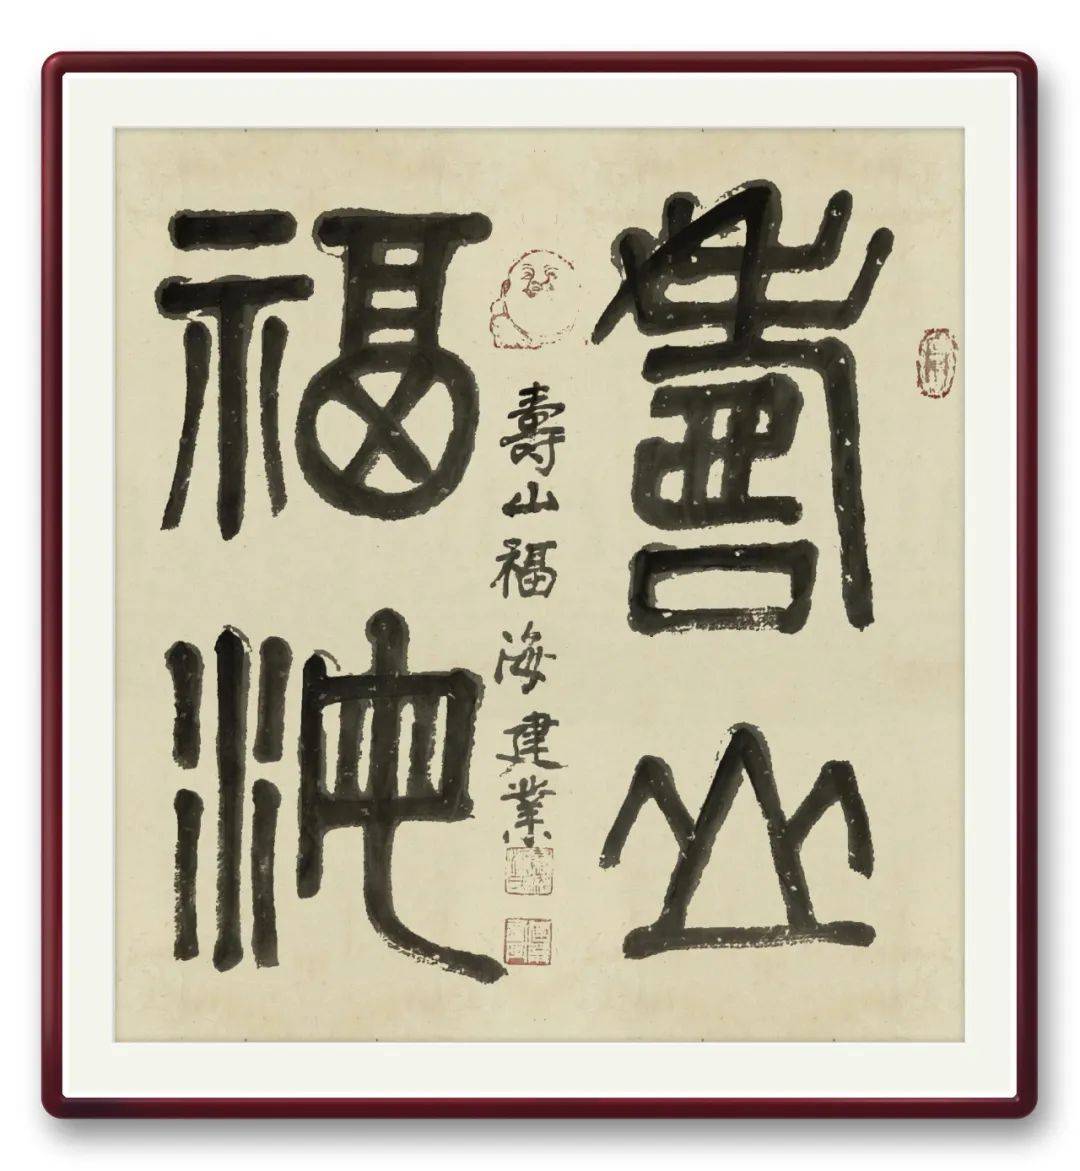 壽山
福海
壽山福海建業